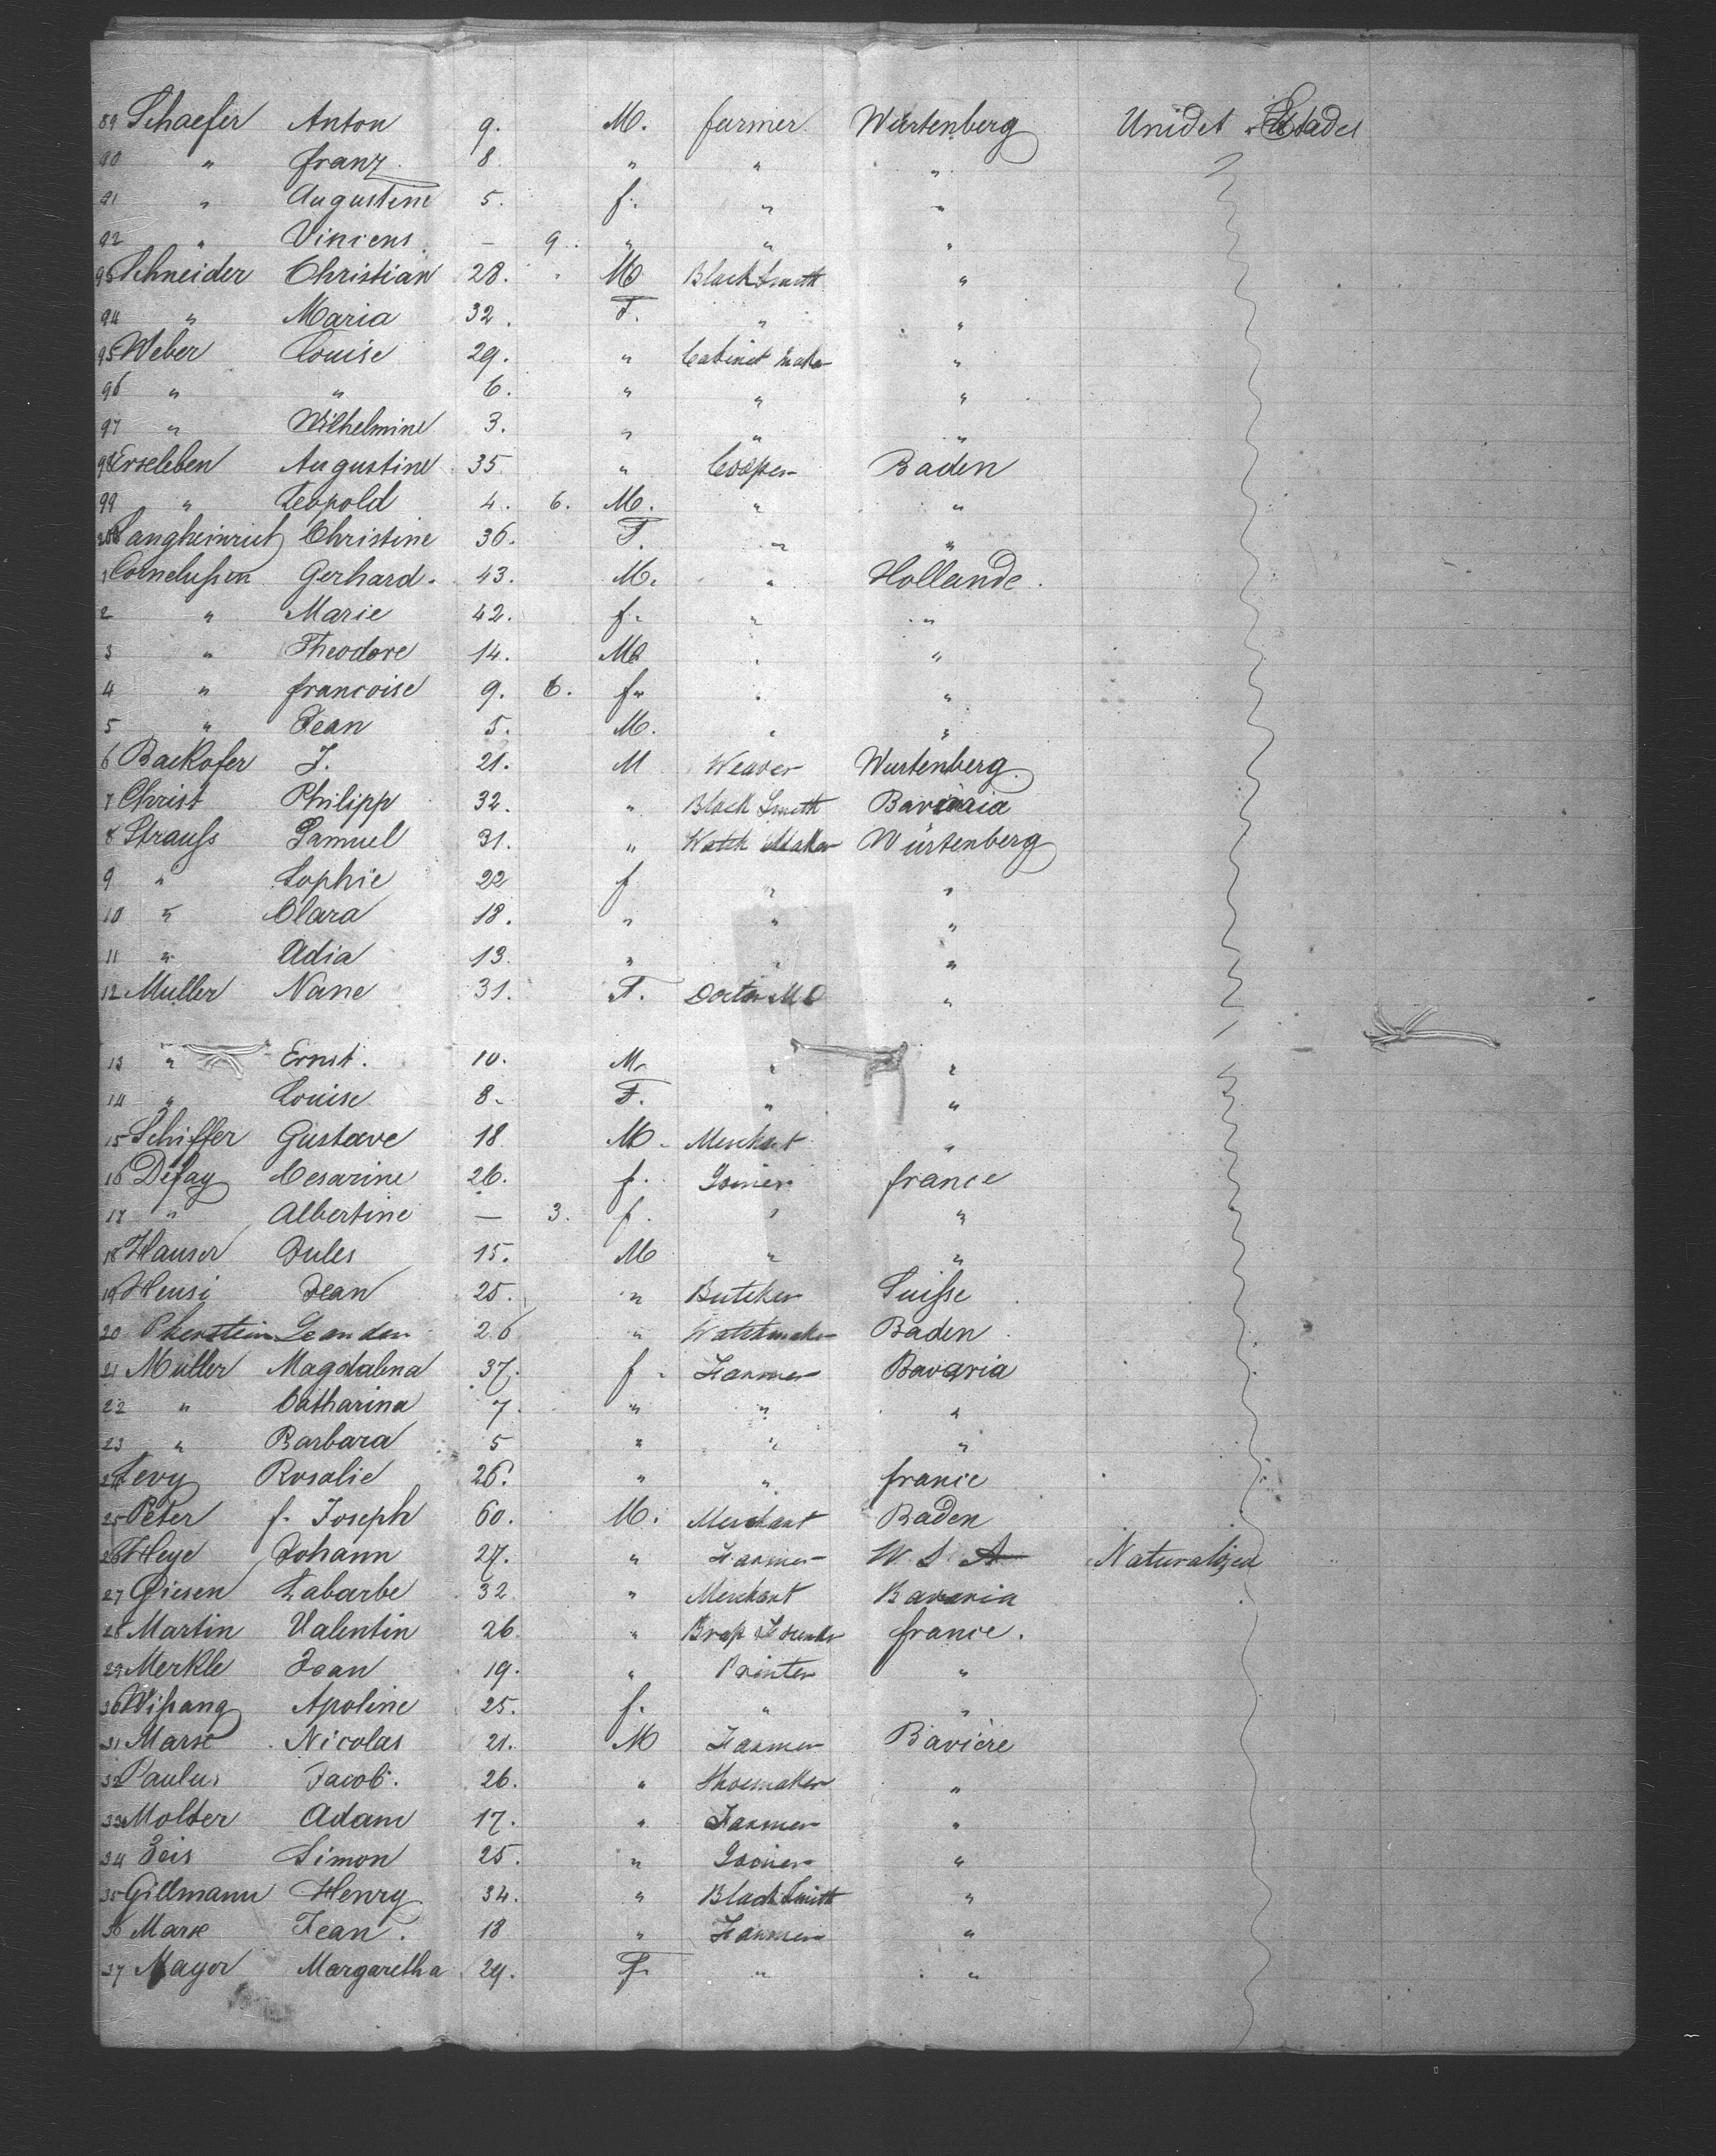 89 Schaefer Anton 9. M. farmer Würtenberg Unidet Stades
90 " franz 8 " " "
91 " Augustine 5. f. " "
92 " Viniens — 9. " " "
93 Schneider Christian 28. " M Black Smith "
94 " Maria 32. F. " "
95 Weber Louise 29. " Cabinet maker "
96 " " 6. " " "
97 " Wilhelmine 3. " " "
98 Erseleben Augustine 35 " Cooper Baden
99 " Leopold 4. 6. M. " "
Langheinrich Christine 36. F. " "
1 Cornelußen Gerhard. 43. M. " Hollande.
2 " Marie 42. f. " "
3 " Theodore 14. M " "
4 " francoise 9. 6. f. " "
5 " Jean 5. M. " "
6 Backofer J. 21. M Weaver Wurtenberg.
7 Christ Philipp 32. " Black Smith Bavaria
8 Strauß Samuel 31. " Watch Maker Würtenberg
9 " Sophie 22 f " "
10 " Clara 18. " " "
11 " Adia 13. " " "
12 Muller Nane 31. F. Doctor M D "
13 " Ernst. 10. M. " "
14 " Louise 8. F. " "
15 Schiffer Gustave 18 M. Merchant "
16 Defay Cesarine 26. f. Joiner france
17 " Albertine — 3. f. " "
18 Hauser Jules 15. M " "
19 Heusi Jean 25. " Butcher Suisse
20 Leander 26 " Watchmaker Baden
21 Müller Magdalena 37. f. Farmer Bavaria
22 " Catharina 7. " " "
23 " Barbara 5 " " "
24 Levy Rosalie 26. " " france
25 Peter f. Joseph 60. M. Merchant Baden
26 Heye Johann 27. " Farmer U. S. A Naturalized
27 Giesen Labarbe 32 " Merchant Bavaria
28 Martin Valentin 26. " Braß Founder france.
29 Merkle Jean 19. " Painter "
30 Wißang Apoline 25. f. " "
31 Marse Nicolas 21. M Farmer Bavière
32 Paulus Jacob. 26. " Shoemaker "
33 Molter Adam 17. " Farmer "
34 Zeis Simon 25. " Joiner "
35 Gillmann Henry 34. " Black Smith "
36 Marse Jean. 18 " Farmer "
37 Mayer Margaretha 29. F. " "